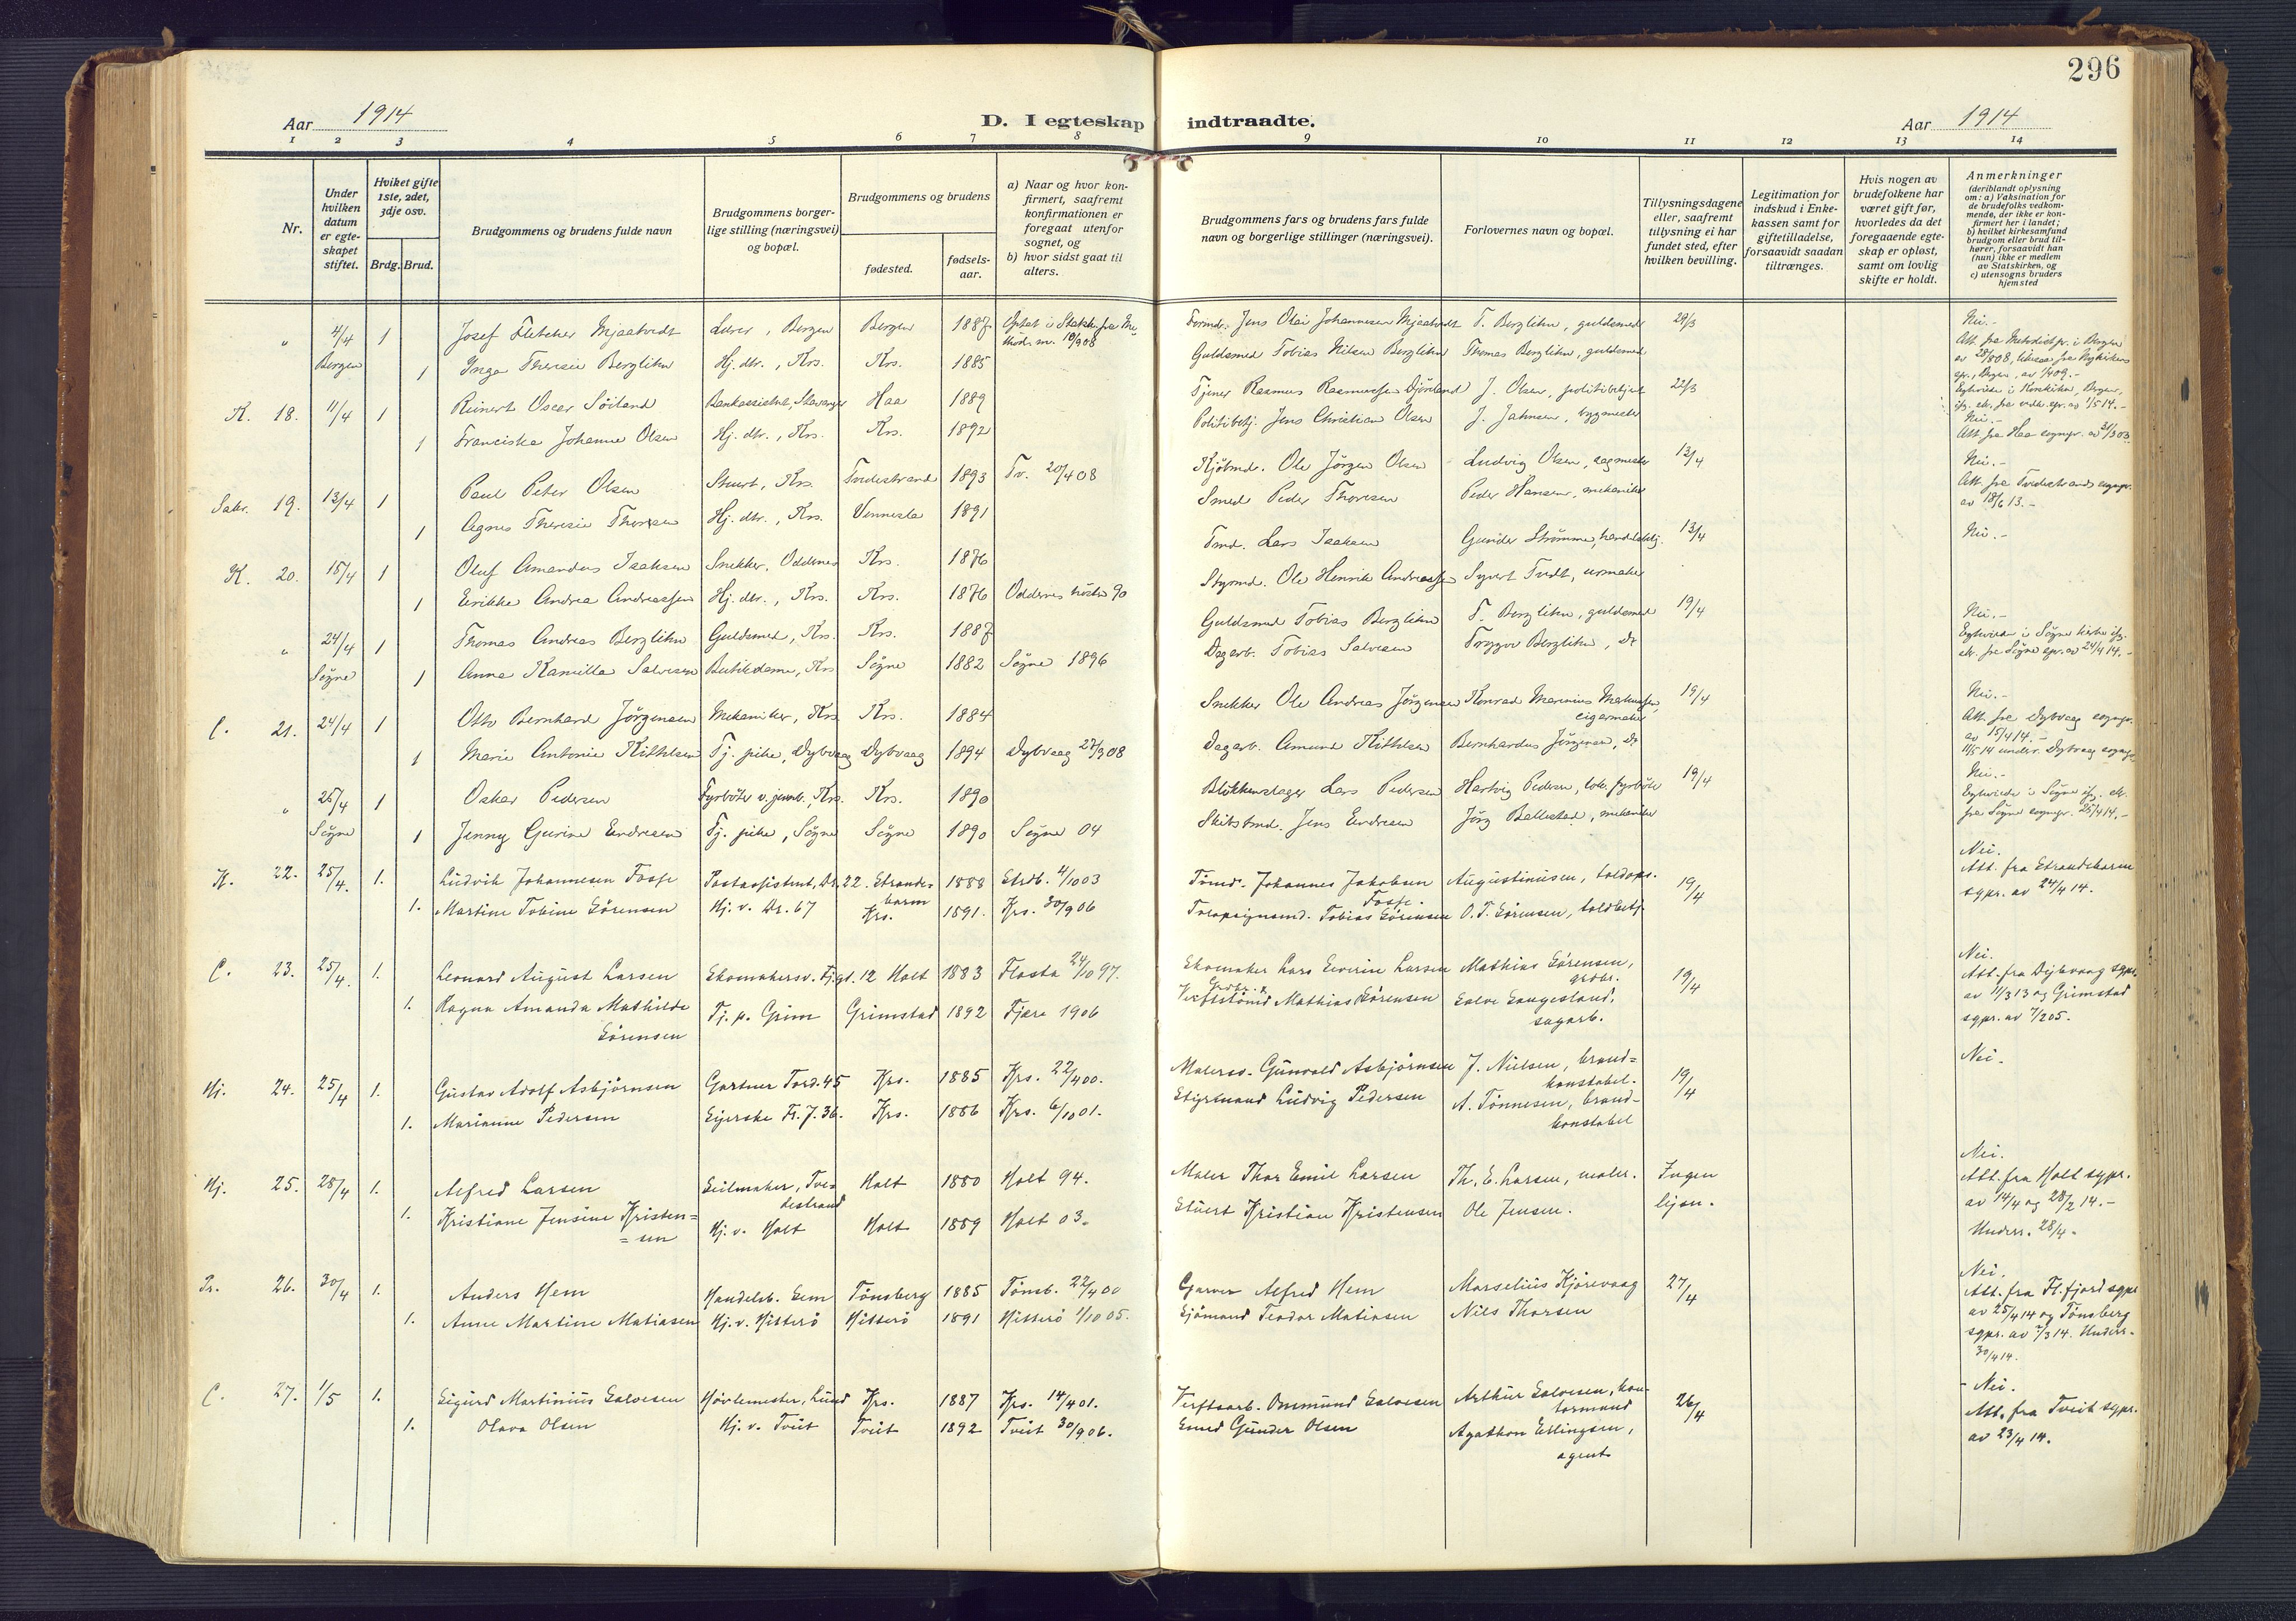 296
Aar 1914
D. I egteskap indtraadte.
Aar 1914
1 2 3 4 5 6 7 8 9 10 11 12 13 14
Nr.
Under hvilken datum er egteskapet stiftet.
Hviket gifte 1ste, 2det, 3dje osv.
Brdg. Brud.
Brudgommens og brudens fulde navn
Brudgommens borgerlige stilling (næringsvei) og bopæl.
Brudgommens og brudens
fødested.
fødselsaar.
a) Naar og hvor konfirmert, saafremt konfirmationen er foregaat utenfor sognet, og
b) hvor sidst gaat til alters.
Brudgommens fars og brudens fars fulde navn og borgerlige stillinger (næringsvei).
Forlovernes navn og bopæl.
Tillysningsdagene eller, saafremt tillysning ei har fundet sted, efter hvilken bevilling.
Legitimation for indskud i Enkekassen samt for giftetilladelse, forsaavidt saadan tiltrænges.
Hvis nogen av brudefolkene har været gift før, hvorledes da det foregaaende egteskap er opløst, samt om lovlig skifte er holdt.
Anmerkninger
(deriblandt oplysning om: a) Vaksination for de brudefolks vedkommende, der ikke er konfirmert her i landet; b) hvilket kirkesamfund brudgom eller brud tilhører, forsaavidt han (hun) ikke er medlem av Statskirken, og c) utensogns bruders hjemsted
" 4/4 1 Josef Fletcher Mjaatvedt Lærer, Bergen Bergen 1887 Formd. Jens Olai Johannesen Mjaatvedt T. Berglihn, guldsmed 29/3 Nei.-
Bergen 1 Inga Theresie Berglihn Hj. dtr., Krs. Krs. 1885 Guldsmed Tobias Nilsen Berglihn Thomas Berglihn, guldsmed
K. 18. 11/4 1 Reinert Oscar Söiland Bankassistent, Stavanger Haa 1889 Tjener Rasmus Rasmussen J. Olsen, politibetjent 22/3 Nei.-
1 Franciska Johanne Olsen Hj. dtr., Krs. Krs. 1892 Politibetj. Jens Christian Olsen J. Jahnsen, bygmester Att. fra Haa sognepr. av 31/3 03
Sakr. 19. 13/4 1 Paul Peter Olsen Stuert, Krs. Tvedestrand 1893 Tv. 20/4 08 Kjöbmd. Ole Jörgen Olsen Ludvig Olsen, sagmester 13/4 Nei.-
1 Agnes Theresie Thorsen Hj. dtr., Krs. Vennesla 1891 Smed Peder Thorsen Peder Hansen, mekaniker Att. fra Tvedestrand sognepr. av 18/6 13.-
K. 20. 15/4 1 Oluf Amandus Isaksen Snekker, Oddernes Krs. 1876 Tmd. Lars Isaksen Gunder Strömme, handelsbtj. 13/4 Nei.-
1 Eirikke Andrea Andreassen Hj. dtr., Krs. Krs. 1876 Oddernes höst 90 Styrmd. Ole Henrik Andreassen Syvert Tvedt, urmaker
" 24/4 1 Thomas Andreas Berglihn Guldsmed, Krs. Krs. 1887 Guldsmed Tobias Berglihn T. Berglihn, guldsmed 19/4 Nei.-
Sögne 1 Anna Kamilla Salvesen Butikdame, Krs Sögne 1882 Sögne 1896 Dagarb. Tobias Salvesen Trygve Berglihn, Do
C. 21. 24/4 1 Otto Bernhard Jörgensen Mekaniker, Krs Krs. 1884 Snekker Ole Andreas Jörgensen Konrad Marinius Markussen, cigarmaker 19/4 Nei.-
1 Marie Antonie Kittelsen Tj. pike, Dybvaag Dybvaag 1894 Dybvaag 27/9 08 Dagarb. Amund Kittelsen Bernhardus Jörgensen, Do Att. fra Dybvaag sognepr. av 15/4 14.-
" 25/4 1 Oskar Pedersen Fyrböter v. jernb., Krs. Krs. 1890 Blikkenslager Lars Pedersen Hartvig Pedersen, lok. fyrböter 19/4 Nei.-
Sögne 1 Jenny Gurine Endresen Tj. pike, Sögne Sögne 1890 Sögne 04 Skibstmd. Jens Endresen Jörg Ballestad, mekaniker
K. 22. 25/4. 1. Ludvik Johannesen Fosse Postassistent, Dr. 22. Strandebarm 1888 Strdb. 4/10 03 Tömd. Johannes Jakobsen Fosse. Augustinusen, toldops. 19/4 Nei.
1. Martine Tobine Sörensen Hj. v. Dr. 67 Krs. 1891. Krs. 30/9 06 Tobias Sörensen O. T. Sörensen, toldbetj. Att. fra Strandebarm sgpr. av 24/4 14.
C. 23. 25/4. 1. Leonard August Larsen Skomakersv. Tjgt. 12 Holt 1883 Flosta 24/10 97. Skomaker Lars Severin Larsen Mathias Sörensen, grdbr. 19/4 Nei.
1. Ragna Amanda Mathilde Sörensen Tj. p. Grim Grimstad 1892 Fjære 1906 Mathias Sörensen Salve Saugesland, sagarb. Att. fra Dybvaag sgpr. av 11/3 13 og Grimstad sgpr. av 7/2 05.
Hj. 24. 25/4 1. Gustav Adolf Asbjörnsen Gartner Tord. 45 Krs. 1885 Krs. 22/4 00. Malersv. Gunvald Asbjörnsen J. Nielsen, brandkonstabel. 19/4 Nei.
1. Marianne Pedersen Syerske Fr. 7. 36. Krs. 1886 Krs. 6/10 01. Styrmand Ludvig Pedersen A. Tönnesen, brandkonstabel
Hj. 25. 28/4 1. Alfred Larsen Seilmaker, Tvedestrand Holt 1880 Holt 94. Maler Thor Emil Larsen Th. E. Larsen, maler. Ingen Nei.
1. Kristiane Jensine Kristensen Hj. v. Holt Holt 1889 Holt 03. Stuert Kristian Kristensen Ole Jensen. lysn. Att. fra Holt sgpr. av 14/4 og 28/2 14.-
Underr. 28/4.
Pr. 26. 30/4 1. Anders Hem Handelsb. Sem Tönsberg 1885 Tönsb. 22/4 00 Garver Alfred Hem Marselius Kjörevaag 27/4 Nei.
1. Anne Martine Matiasen Hj. v. Hitterö Hitterö 1891 Hitterö 1/10 05. Sjömand Teodor Matiasen Nils Thorsen Att. fra Fl. fjord sgpr av 25/4 14 og Tönsberg sgpr. av 7/3 14. Underr. 30/4 14.
C. 27. 1/5 1. Sigurd Martinius Salvesen Hövlemester, Lund Krs. 1887 Krs. 14/4 01. Verftsarb. Ommund Salvesen Arthur Salvesen, kontormand 26/4 Nei.
1. Olava Olsen Hj. v. Tveit Tveit 1892 Tveit 30/9 06. Smed Gunder Olsen Agathon Erlingsen, agent Att. fra Tveit sgpr. av 23/4 14.